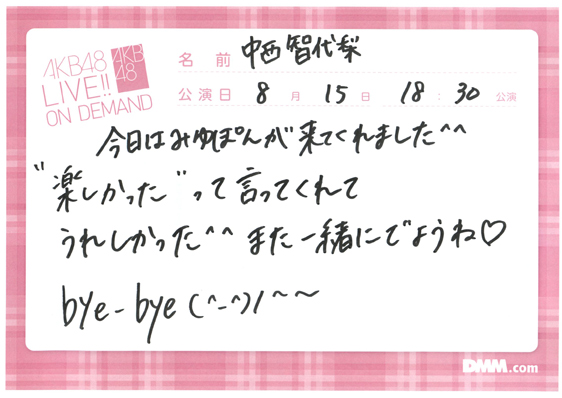 AKB48
LIVE!!
ON DEMAND
AKB
48
名前 中西智代梨
公演日 8月 15日 18:30 公演
今日はみゆぽんが来てくれました^^
"楽しかった"って言ってくれて
うれしかった^^ また一緒にでようね♡
bye-bye (^-^)/~~
DMM.com